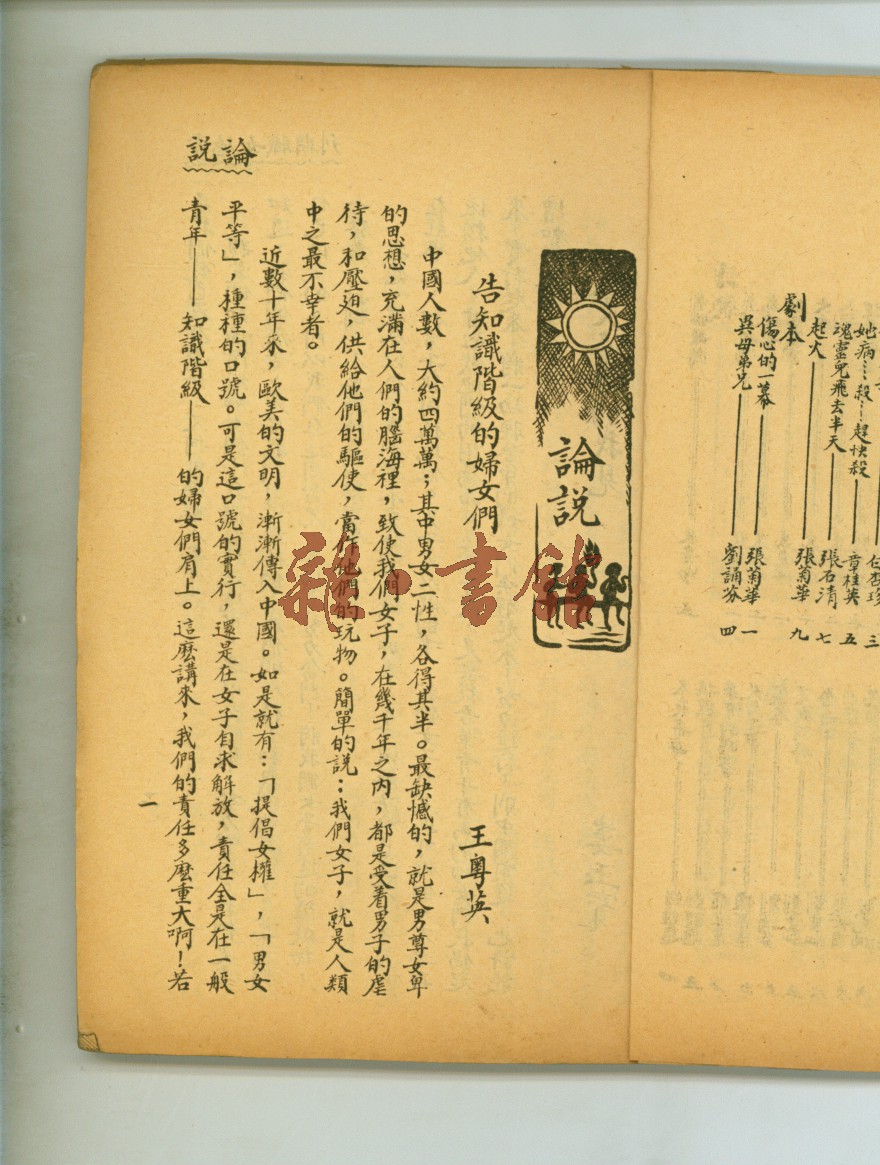 劇本
她病……殺……趕快殺 章桂英 五
魂靈兒飛去半天 張石清 七
起火 張菊華 九
傷心的一幕 張菊華 一
異母弟兄 劉誦芬 四
論說
告知識階級的婦女們 王粵英
中國人數，大約四萬萬；其中男女二性，各得其半。最缺憾的，就是男尊女卑
的思想，充滿在人們的腦海裡，致使我們女子，在幾千年之內，都是受着男子的虐
待，和壓迫，供給他們的驅使，當作他們的玩物。簡單的說：我們女子，就是人類
中之最不幸者。
近數十年來，歐美的文明，漸漸傳入中國。如是就有：「提倡女權」，「男女
平等」，種種的口號。可是這口號的實行，還是在女子自求解放，責任全是在一般
青年——知識階級——的婦女們肩上。這麽講來，我們的責任多麽重大啊！若
論說
一
雜·書館